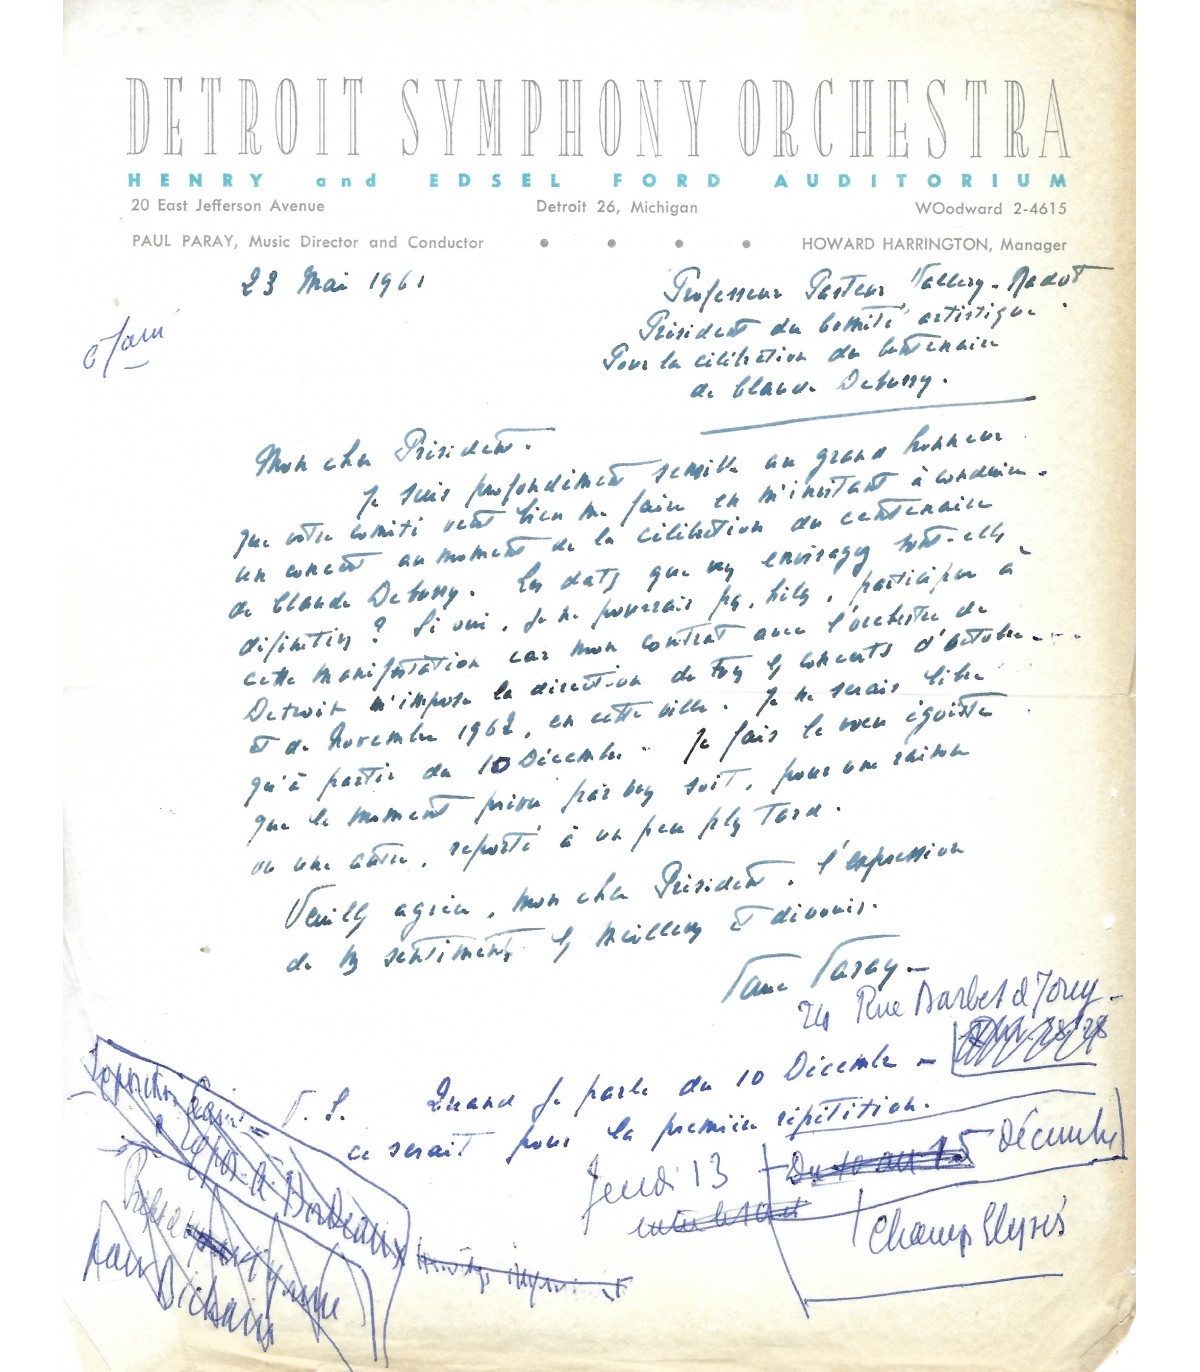 DETROIT SYMPHONY ORCHESTRA
HENRY and EDSEL FORD AUDITORIUM
20 East Jefferson Avenue Detroit 26, Michigan WOodward 2-4615
PAUL PARAY, Music Director and Conductor • • • • HOWARD HARRINGTON, Manager
23 Mai 1961
Professeur Pasteur Vallery-Radot
Président du Comité artistique
Pour la célébration du Centenaire
de Claude Debussy.
Mon cher Président.
Je suis profondément sensible au grand honneur
que votre comité veut bien me faire en m'invitant à conduire
un concert au moment de la célébration du centenaire
de Claude Debussy. Les dates que vous envisagez sont-elles
définitives ? Si oui, je ne pourrais pas, hélas, participer à
cette manifestation car mon contrat avec l'orchestre de
Detroit m'impose la direction de tous les concerts d'octobre
et de Novembre 1962, en cette ville. Je ne serais libre
qu'à partir du 10 Décembre. Je fais le voeu égoïste
que le moment prévu par vous soit, pour une raison
ou une autre, reporté à un peu plus tard.
Veuillez agréer, mon cher Président, l'expression
de mes sentiments les meilleurs et dévoués.
Paul Paray
24 Rue Barbet d Jouy
P. S. Quand je parle du 10 Décembre
ce serait pour la première répétition.
Jeudi 13 Du 10 au 15 Décembre
Champs Elysées
Bordeaux